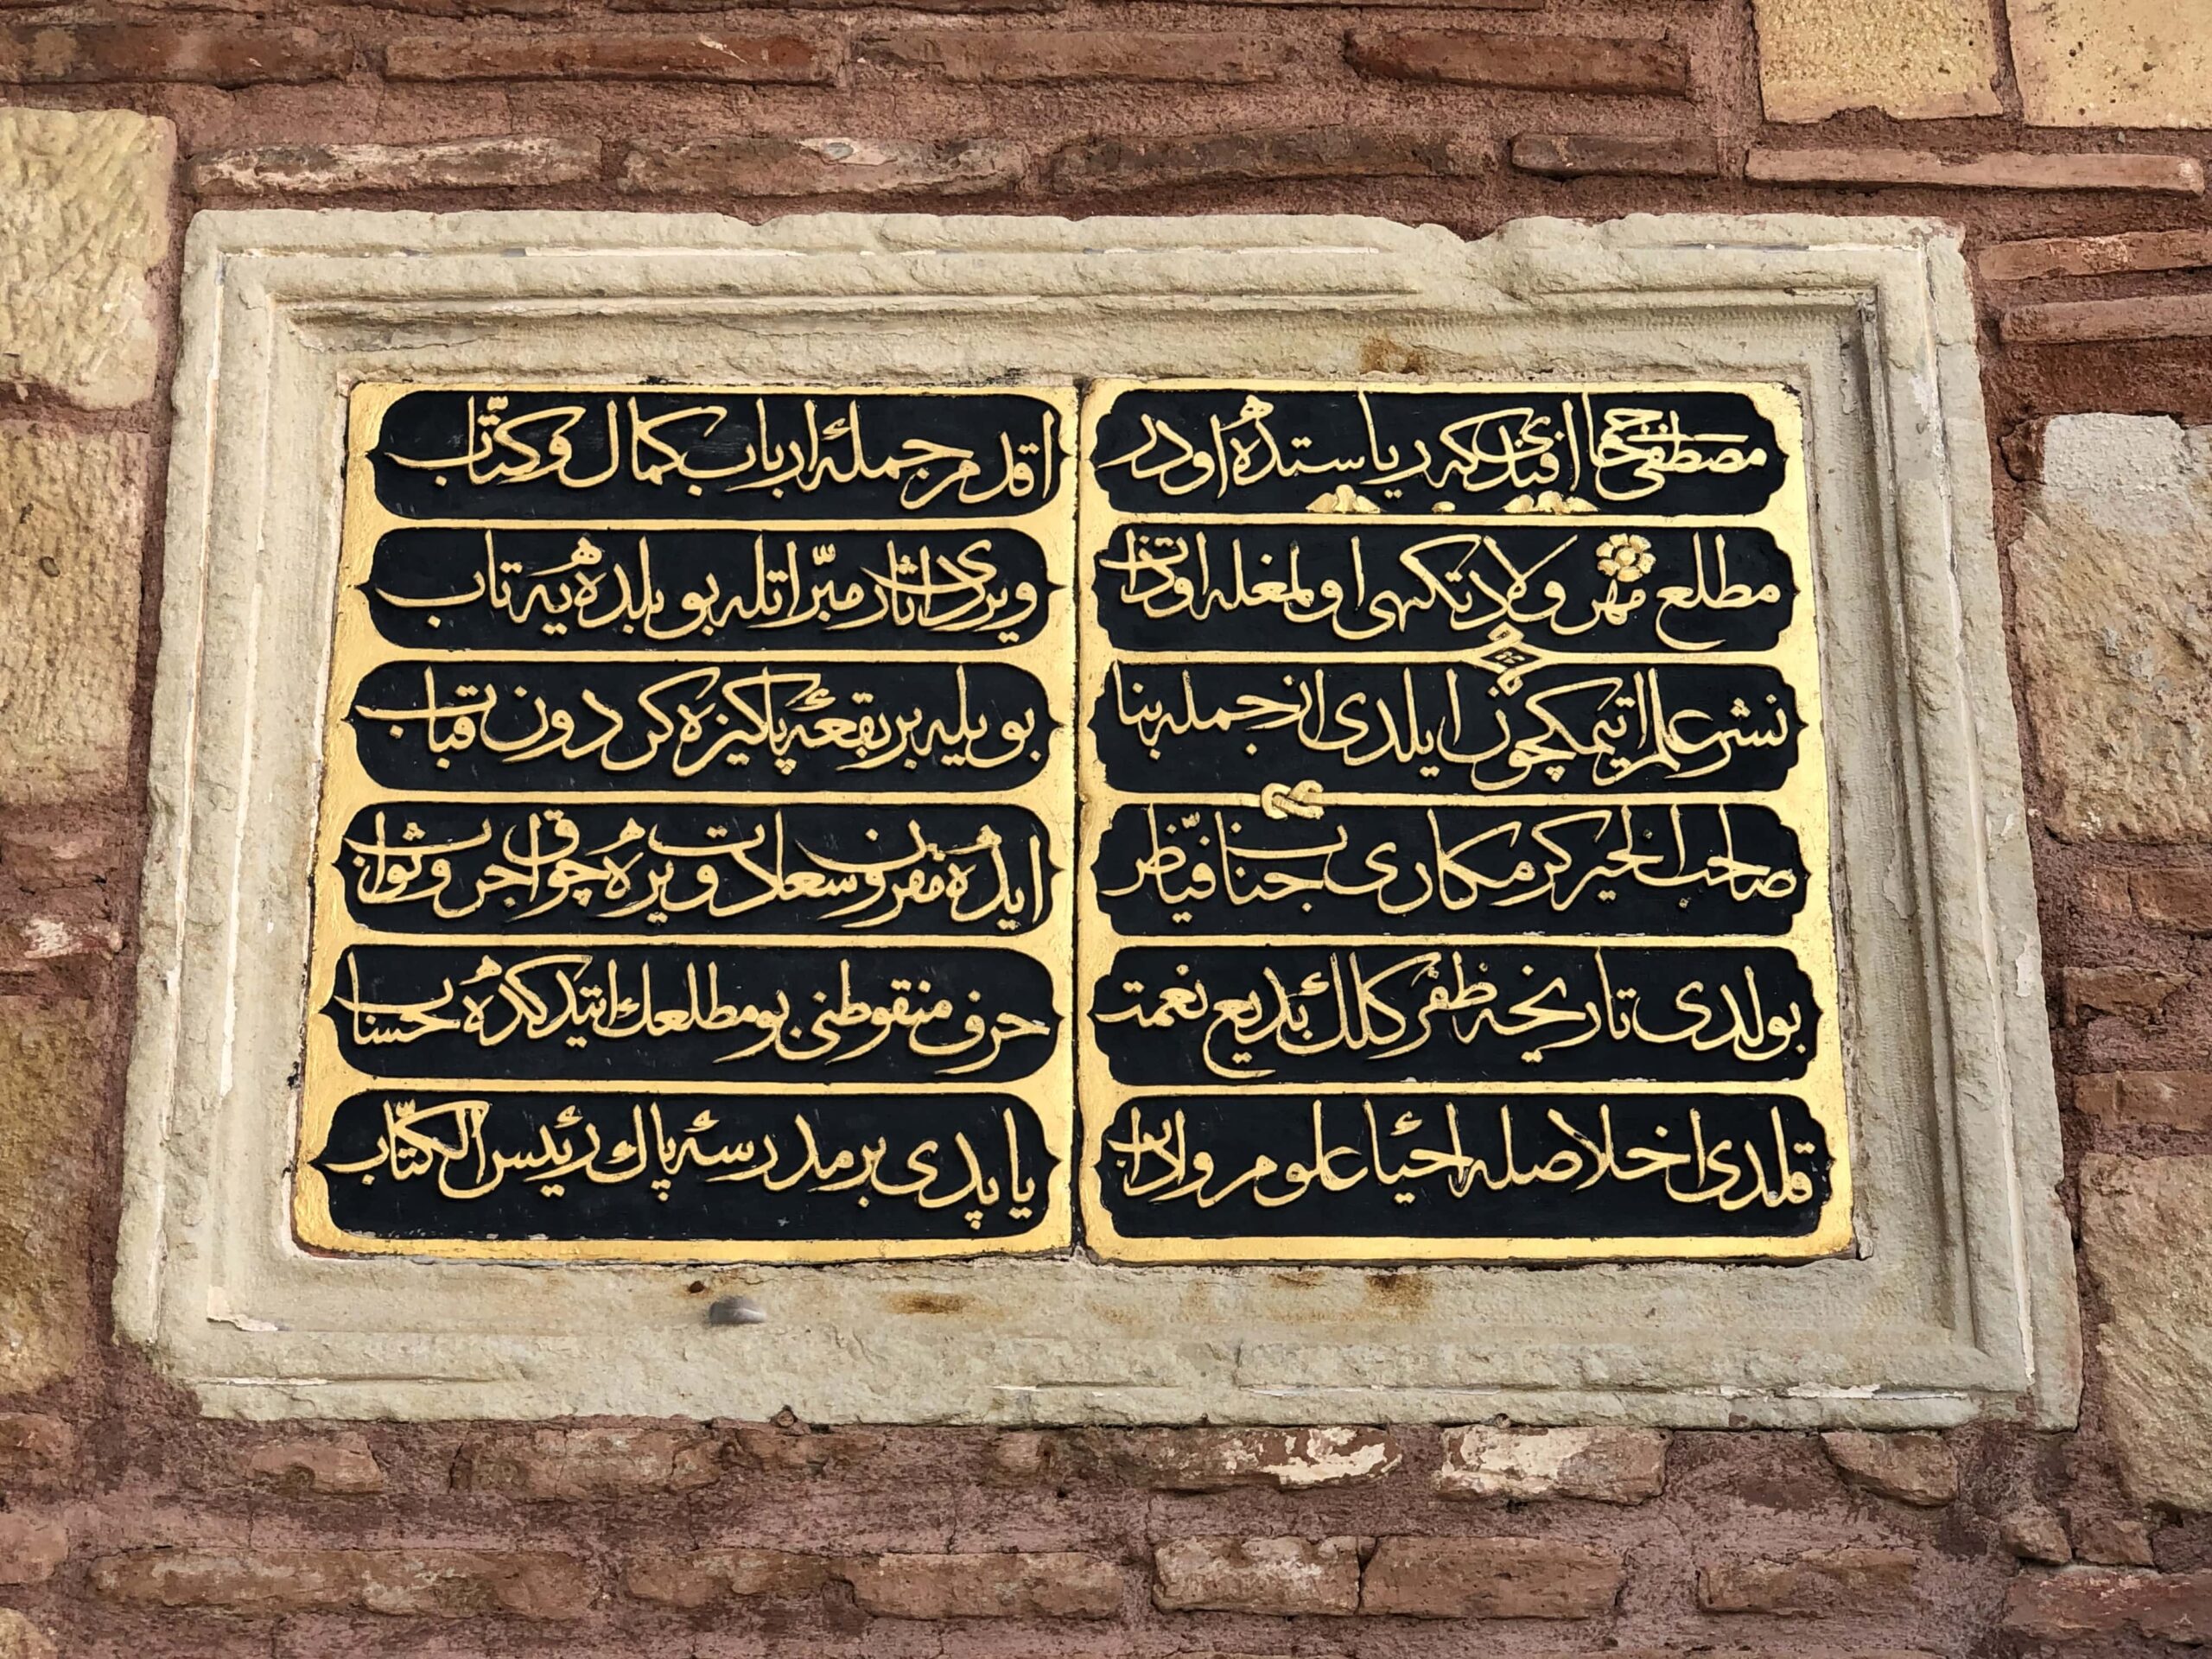 مصطفى حاجى افندى كه رياستده اودر
اقدم جملهٔ ارباب كمال و كتّاب
مطلع مهر ولادتكهى اولمغله اوذات
ويردى اثار مبرّاتله بو بلده‌يه تاب
نشر علم اتمكچون ايلدى از جمله بنا
بويله بر بقعهٔ پاكيزهٔ كردون قباب
صاحب الخير كرمكارى جناب فيّاض
ايده مقرون سعادت ويره چوق اجر و ثواب
بولدى تاريخه ظفر كلك بديع نعمت
حرف منقوطنى بو مطلعك ايتدكده حساب
قلدى اخلاصله احياء علوم و اداب
ياپدى بر مدرسهٔ پاك رئيس الكتّاب